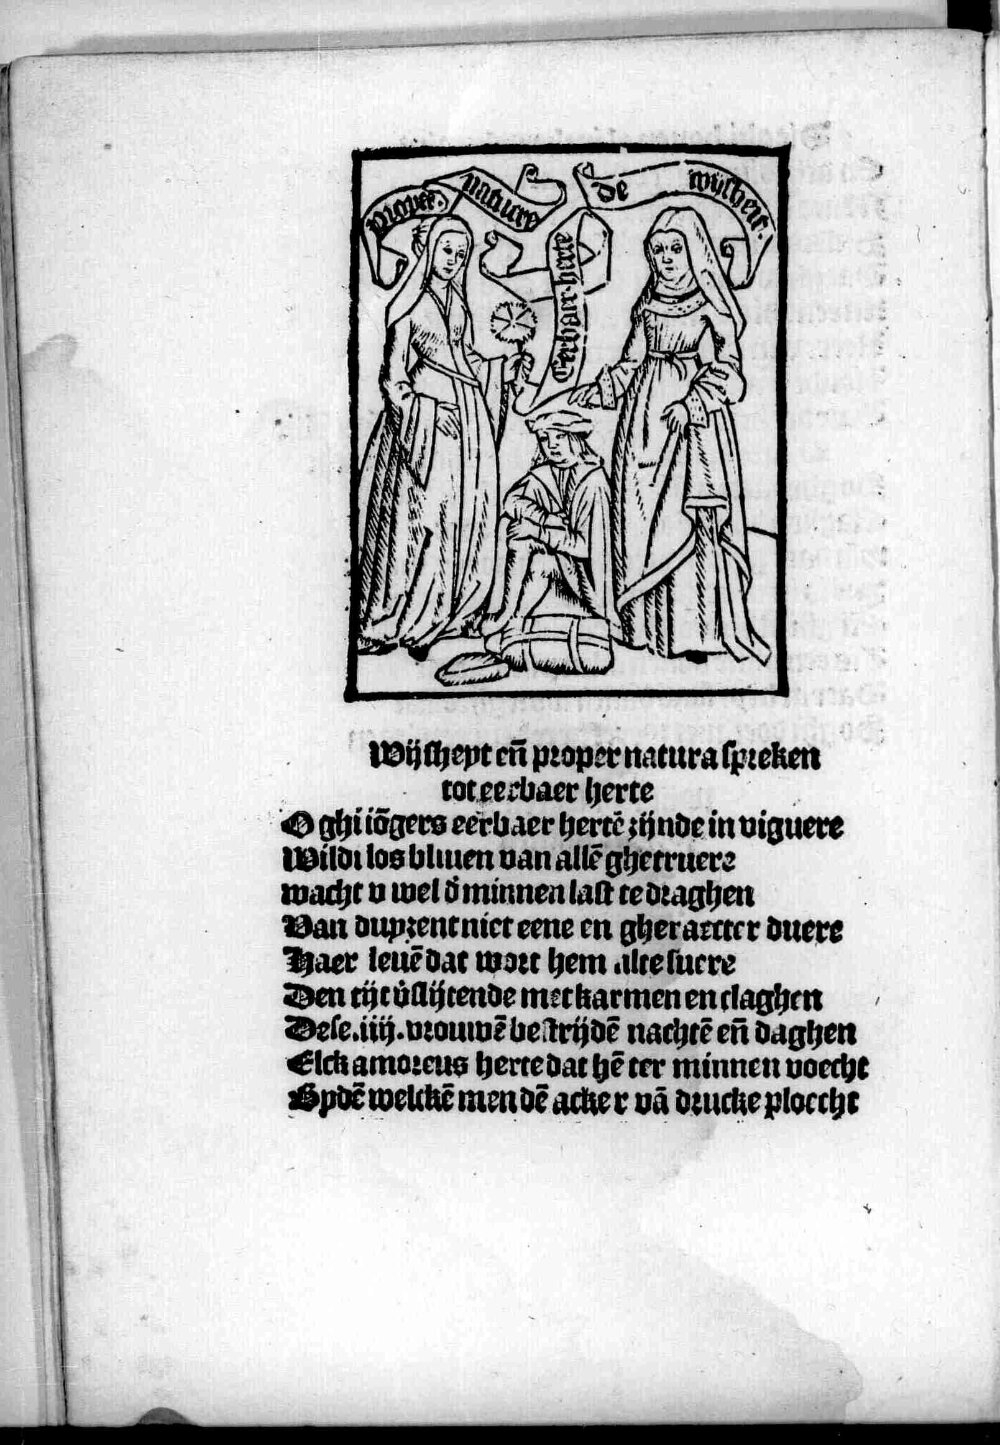 Proper. nature
de wijsheit.
Eerbaer. herte
Wijsheyt eñ proper natura spreken
tot eerbaer herte
O ghi iõgers eerbaer hertẽ zijnde in viguere
Wildi los bliuen van allẽ ghetruere
wacht v wel d' minnen last te draghen
Van duyzent niet eene en gheraecter duere
Haer leuẽ dat wort hem alte suere
Den tijt v'slijtende met karmen en claghen
Dese .iiij. vrouwẽ bestrijdẽ nachtẽ eñ daghen
Elck amoreus herte dat hẽ ter minnen voecht
Bydẽ welckẽ men dẽ acker vã drucke ploecht